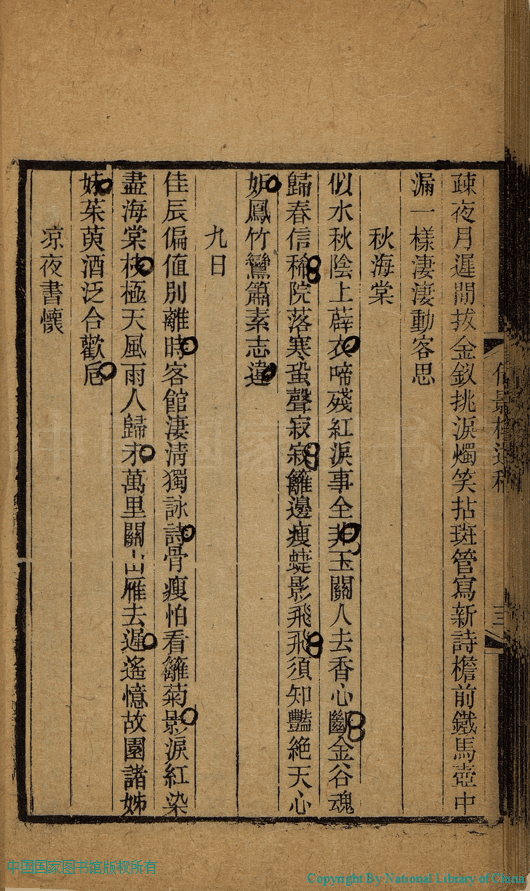 疎夜月遲閒拔金釵挑淚燭笑拈斑管寫新詩檐前鐵馬壺中
漏一樣淒淒動客思
秋海棠
似水秋陰上薜衣啼殘紅淚事全非玉關人去香心斷金谷魂
歸春信稀院落寒蛩聲寂寂籬邊瘦蜨影飛飛須知豔絕天心
妬鳳竹鸞簫素志違
九日
佳辰偏值別離時客館淒清獨詠詩骨瘦怕看籬菊影淚紅染
盡海棠枝極天風雨人歸未萬里關山雁去遲遙憶故園諸姊
妹茱萸酒泛合歡卮
凉夜書懷
三
中国国家图书馆版权所有
Copyright By National Library of China